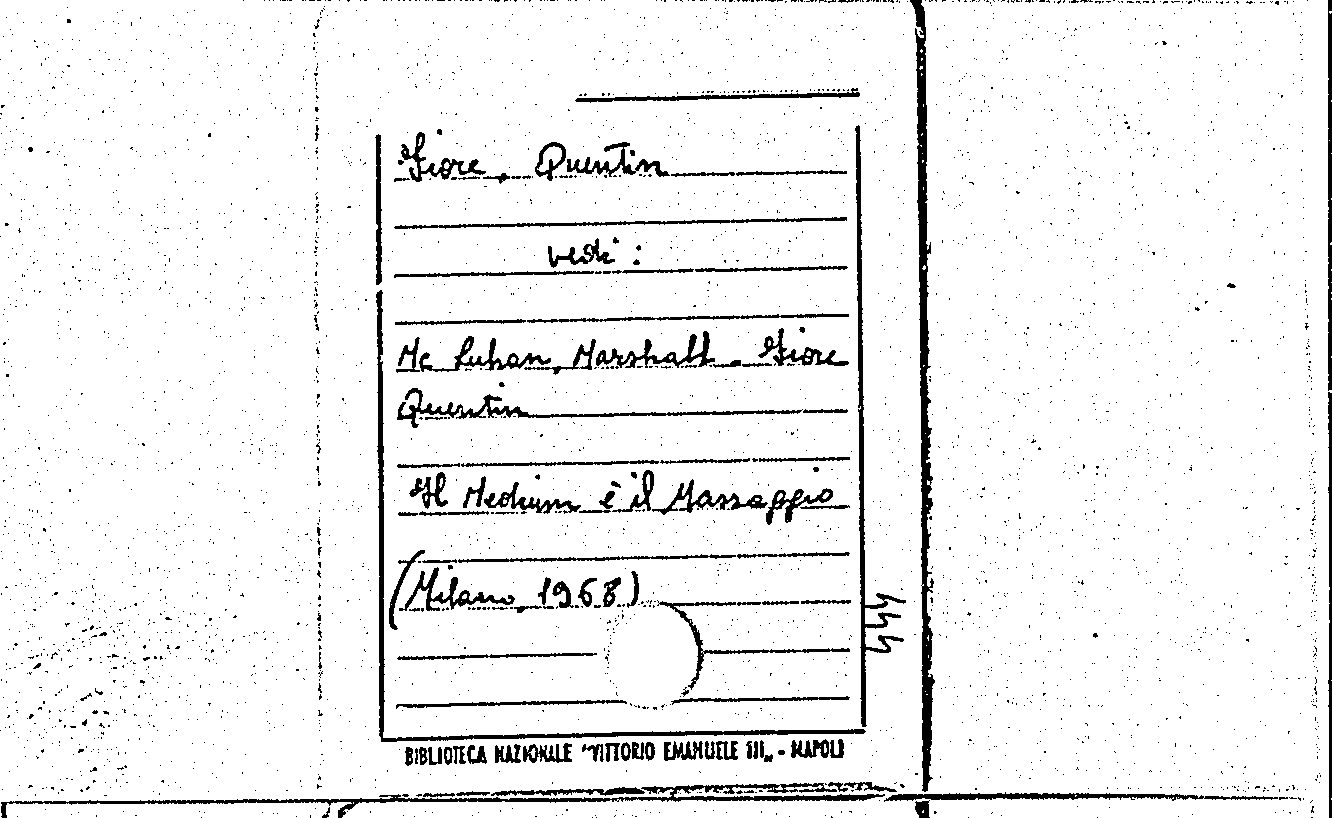 Fiore, Quentin
vedi :
Mc Luhan, Marshall - Fiore
Quentin
Il Medium è il Massaggio
(Milano, 1968)
BIBLIOTECA NAZIONALE "VITTORIO EMANUELE III„ - NAPOLI